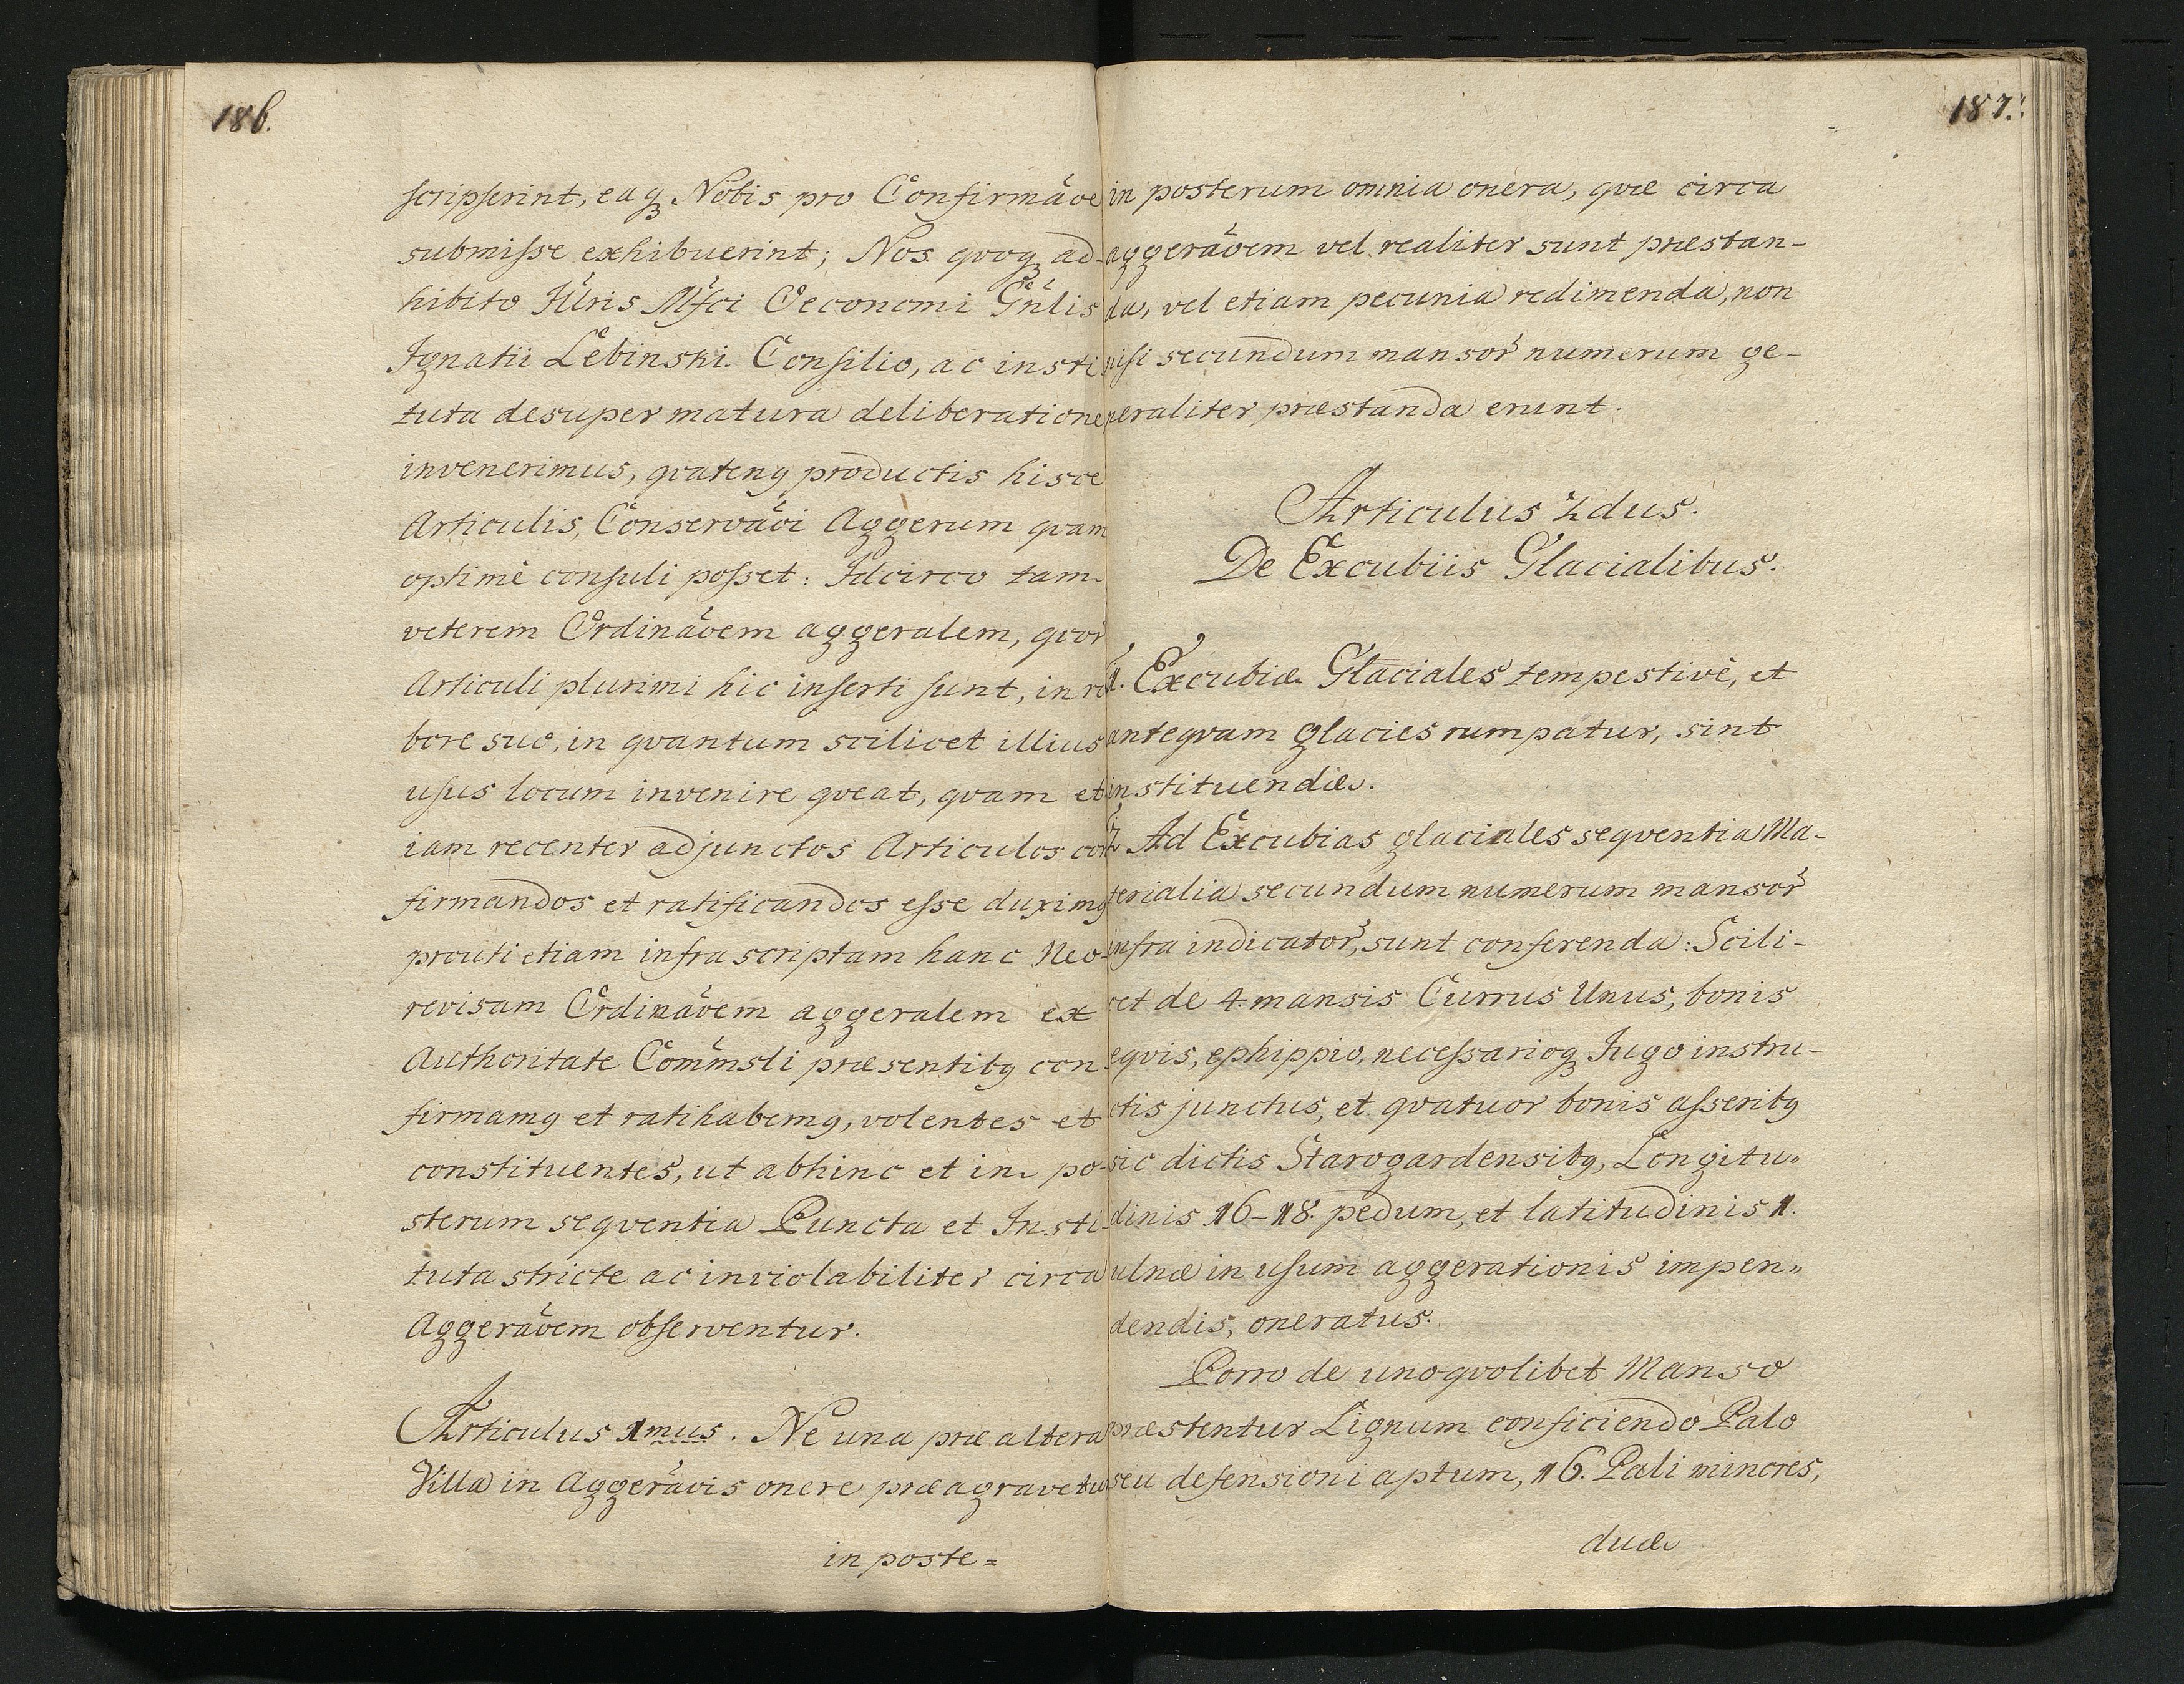 186.
scripserint, eaq̃ Nobis pro Confirmaõe
submisse exhibuerint; Nos qvoq̃ ad-
hibito Illris Mfci Oeconomi Gnlis
Ignatii Łebinski. Consilio, ac insti
tuta desuper matura deliberatione
invenerimus, qvatenq productis hisce
Articulis, Conservaõi Aggerum qvam
optimè consuli posset: Idcirco tam
veterem Ordinaõem aggeralem, qvor̃
Articuli plurimi hic inserti sunt, in ro
bore suo, in qvantum scilicet illius
usus locum invenire qveat, qvam et
iam recenter adjunctos Articulos con
firmandos et ratificandos esse duximq
prouti etiam infra scriptam hanc Neo-
revisam Ordinaõem aggeralem ex
Authoritate Com̃msli præsentibq con-
firmamq et ratihabemq, volentes et
constituentes, ut abhinc et in po-
sterum seqventia Puncta et Insti-
tuta stricte ac inviolabiliter circa
Aggeraõem observentur.
Articulus 1mus. Ne una præ altera
Villa in Aggeraõis onere præagravetur
in poste=
187.
in posterum omnia onera, qvæ circa
aggeraõem vel realiter sunt præstan-
da, vel etiam pecunia redimenda, non
nisi secundum mansor̃ numerum ge-
neraliter præstanda erunt.
Articulus 2dus.
De Excubiis Glacialibus.
1. Excubiæ Glaciales tempestivè, et
anteqvam glacies rumpatur, sint
instituendæ.
2. Ad Excubias glaciales seqventia Ma-
terialia secundum numerum mansor̃
infra indicator̃, sunt conferenda: Scili-
cet de 4. mansis Currus Unus, bonis
eqvis, ephippio, necessarioq̃ Jugo instru-
ctis junctus, et qvatuor bonis asseribq
sic dictis Starogardensibq, Longitu„
dinis 16-18. pedum, et latitudinis 1.
ulnæ in usum aggerationis impen„
dendis, oneratus.
Porro de unoqvolibet Manso
præstentur Lignum conficiendo Palo
seu defensioni aptum, 16. Pali minores,
duæ